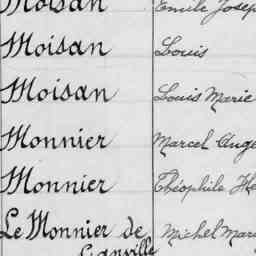 Moisan Emile Josep
Moisan Louis
Moisan Louis Marie
Monnier Marcel Auge
Monnier Théophile He
Le Monnier de Michel Mar
Gonville